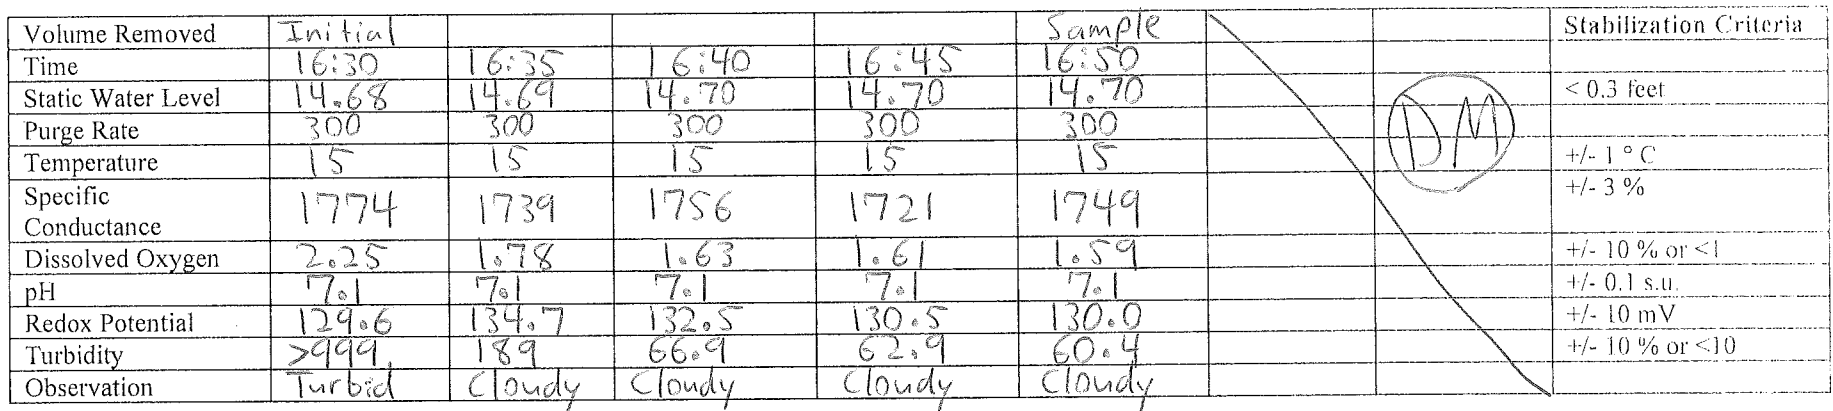 Volume Removed Initial Sample Stabilization Criteria
Time 16:30 16:35 16:40 16:45 16:50
Static Water Level 14.68 14.69 14.70 14.70 14.70 < 0.3 feet
Purge Rate 300 300 300 300 300
Temperature 15 15 15 15 15 +/- 1 ° C
Specific Conductance 1774 1739 1756 1721 1749 +/- 3 %
Dissolved Oxygen 2.25 1.78 1.63 1.61 1.59 +/- 10 % or <1
pH 7.1 7.1 7.1 7.1 7.1 +/- 0.1 s.u.
Redox Potential 129.6 134.7 132.5 130.5 130.0 +/- 10 mV
Turbidity >999 189 66.9 62.9 60.4 +/- 10 % or <10
Observation Turbid Cloudy Cloudy Cloudy Cloudy
DM